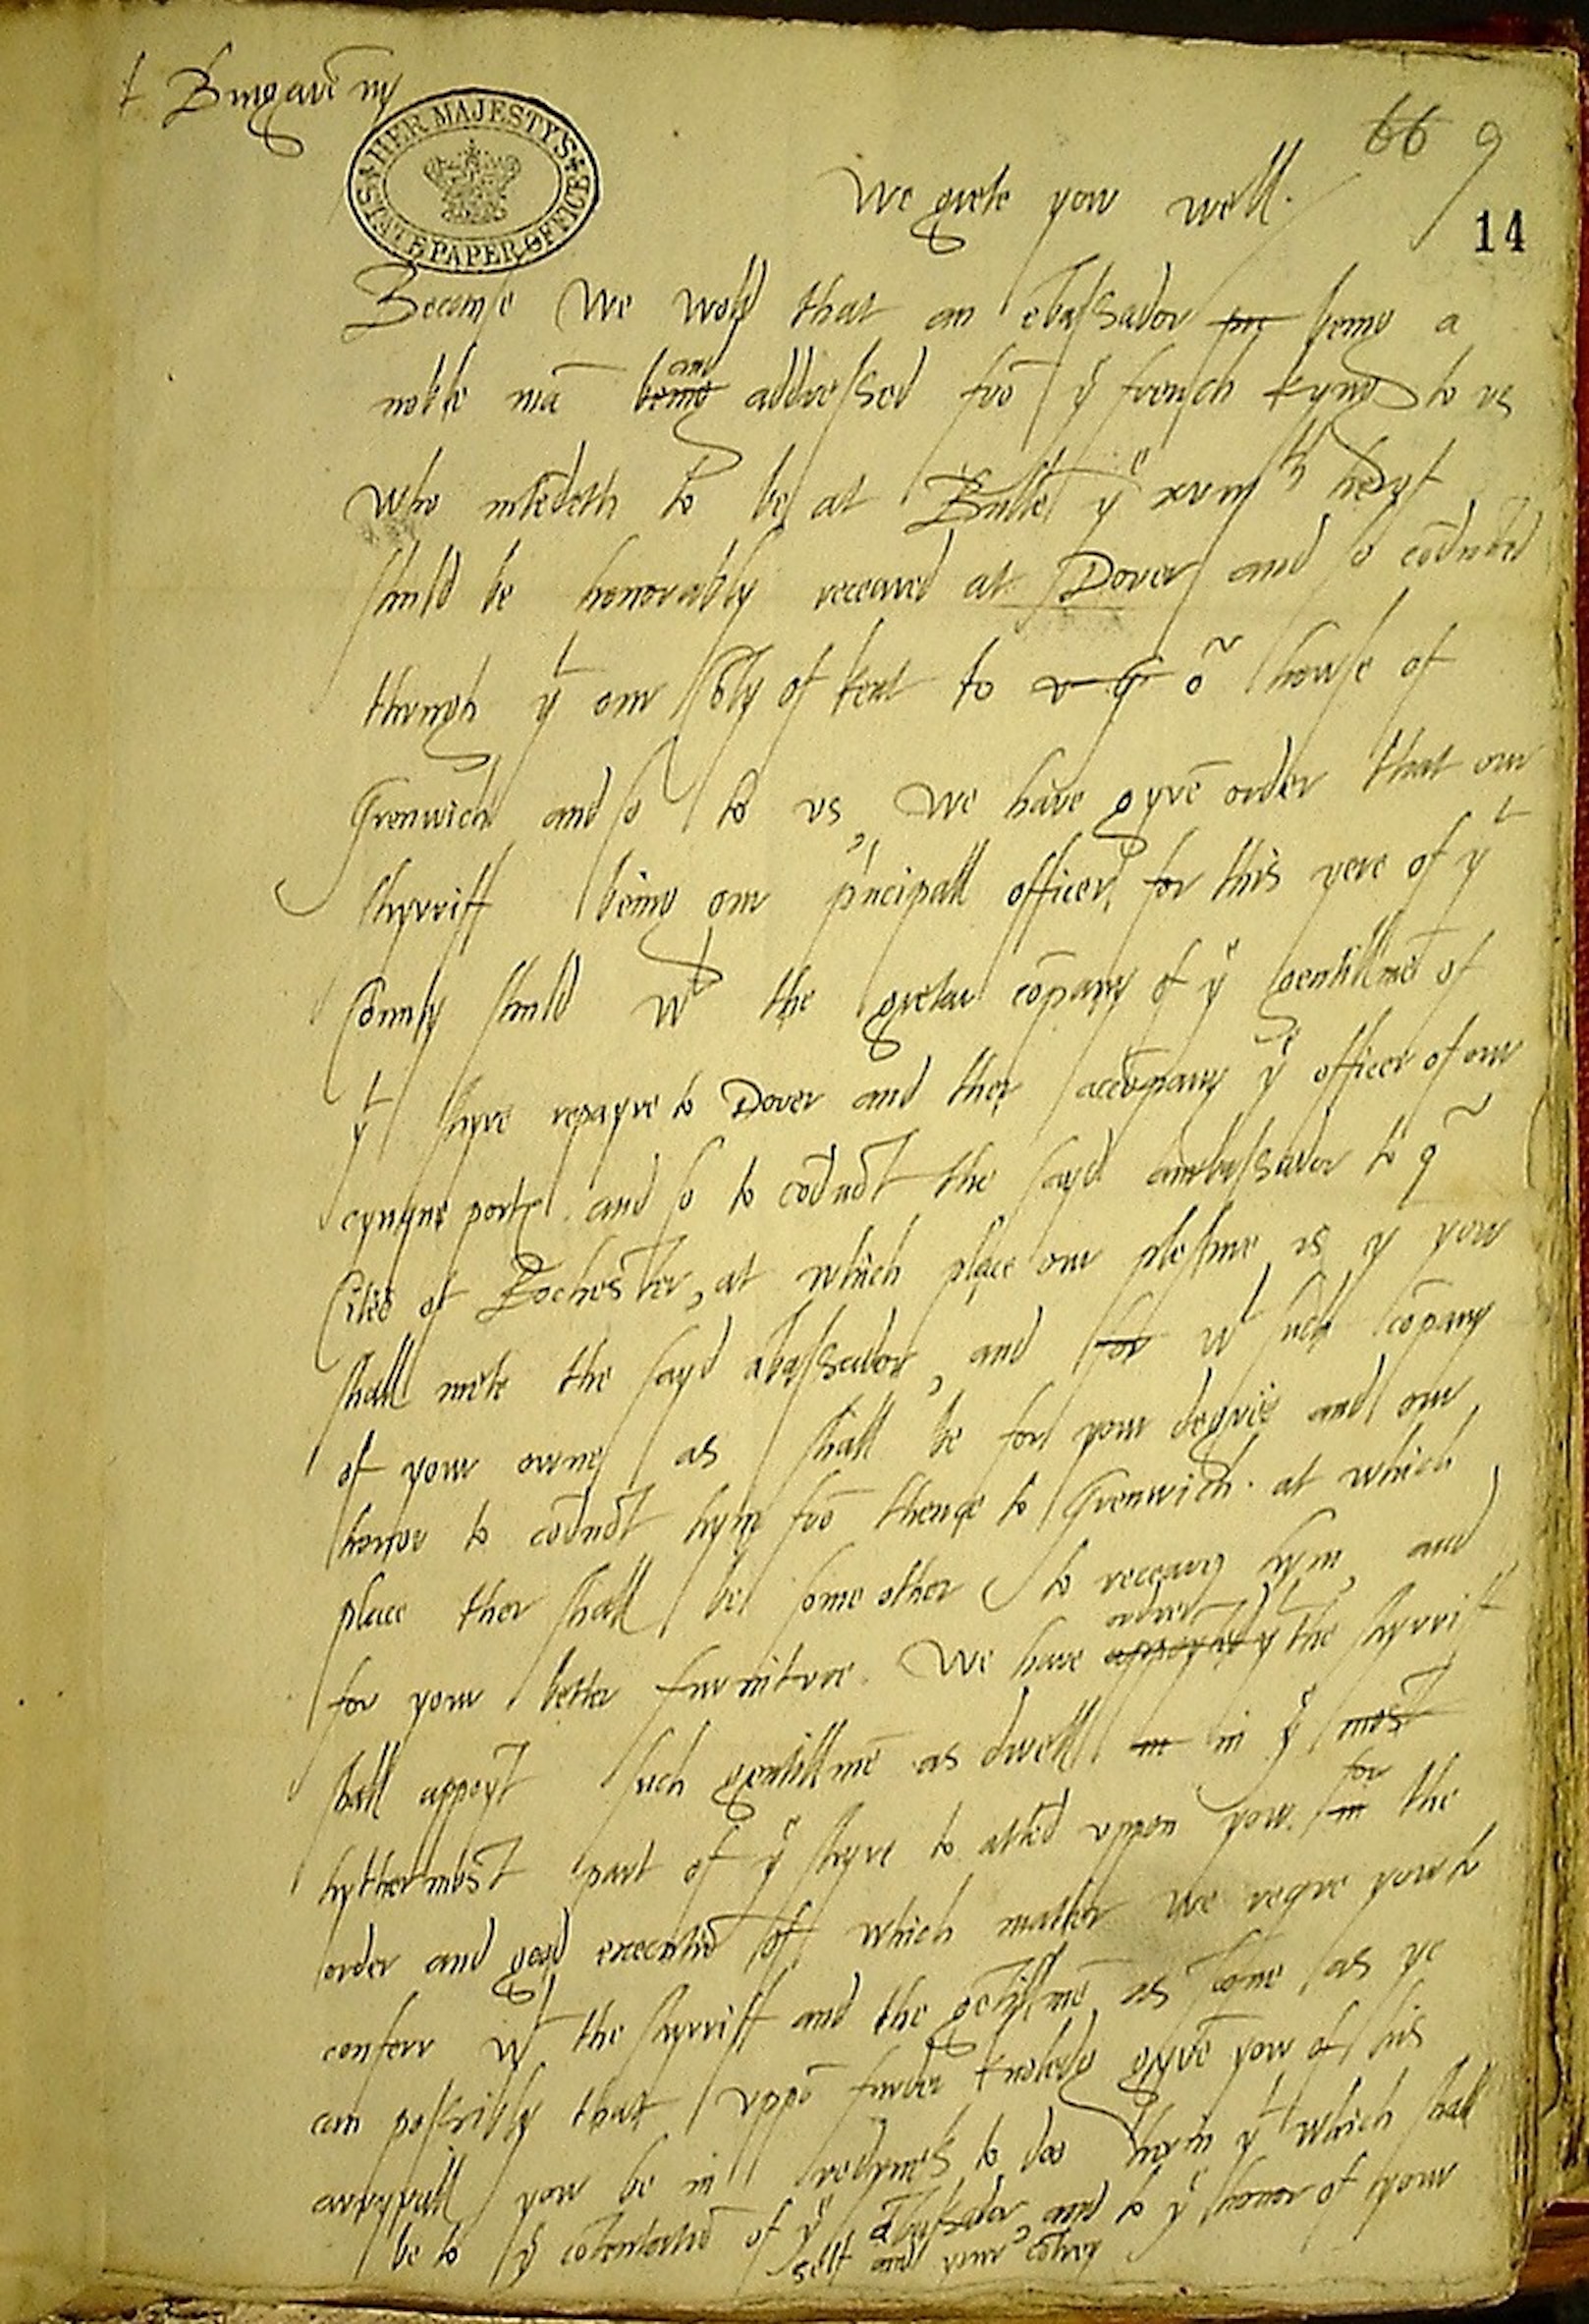 t. Burgavēny
HER MAJESTY'S STATE PAPER OFFICE
66 9
We grete yow well.
14
Because We wold that an ēbassador being a
noble mā and being addressed frō yͤ french kyng to vs
who intēdeth to be at Bullē yͤ xviiiᵗʰ hereof
shuld be honorably receaved at Dover and so cōducted
through yᵗ our Coūty of kent to oʳ howse of
Grenwich and so to vs, We have gyvē order that our
shyrriff being our p'ncipall officer for this yere of yᵗ
County shuld wᵗ the gretar cōpany of yͤ gentillmē of
yᵗ shyre repayre to Dover and ther accōpany yͤ officer of our
cynque ports and so to cōduct the sayd ambassador to oʳ
Citeē of Rochester, at which place our plesure is yᵗ yow
shall mete the sayd ābassador, and for wᵗ such cōpany
of your owne as shall be for your degree and our
honor to cōduct hym frō thence to Grenwich. at which
place ther shall be some other to receave hym, and
for your better furniture. We have ordred appoynted yᵗ the shyrriff
shall appoyt such gentillmē as dwell in in yͤ most
hythermost part of yͤ shyre to attēd vppon yow. for in the
order and good executiō of which matter We reqre yow to
conferr wᵗ the shyrriff and the gētillmē as sone as ye
can possibly that vppō furder knoledg gyvē yow of his
arryvall yow be in redynes to doo therin yᵗ which shall
be to yͤ cōtentatiō of yͤ ābassador, and to yͤ honor of your
self and your cōtrey